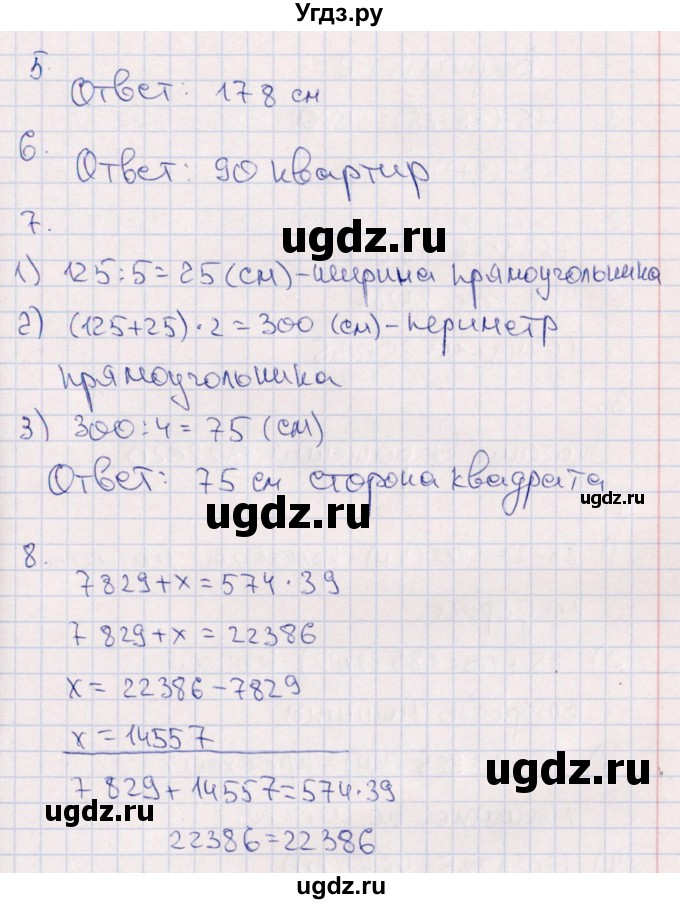 Угдз.ру
5.
Ответ: 178 см
6.
Ответ: 90 квартир
7.
ugdz.ru
1) 125:5=25(см)-ширина прямоугольника
2) (125+25)·2=300 (см)-периметр
прямоугольника
3) 300:4=75 (см)
Ответ: 75 см сторона квадрата
ugdz.ru
ugdz.ru
8.
7829+x=574·39
7829+x=22386
x=22386-7829
x=14557
ugdz.ru
7829+14557=574·39
ugdz.ru
22386=22386
ugdz.ru